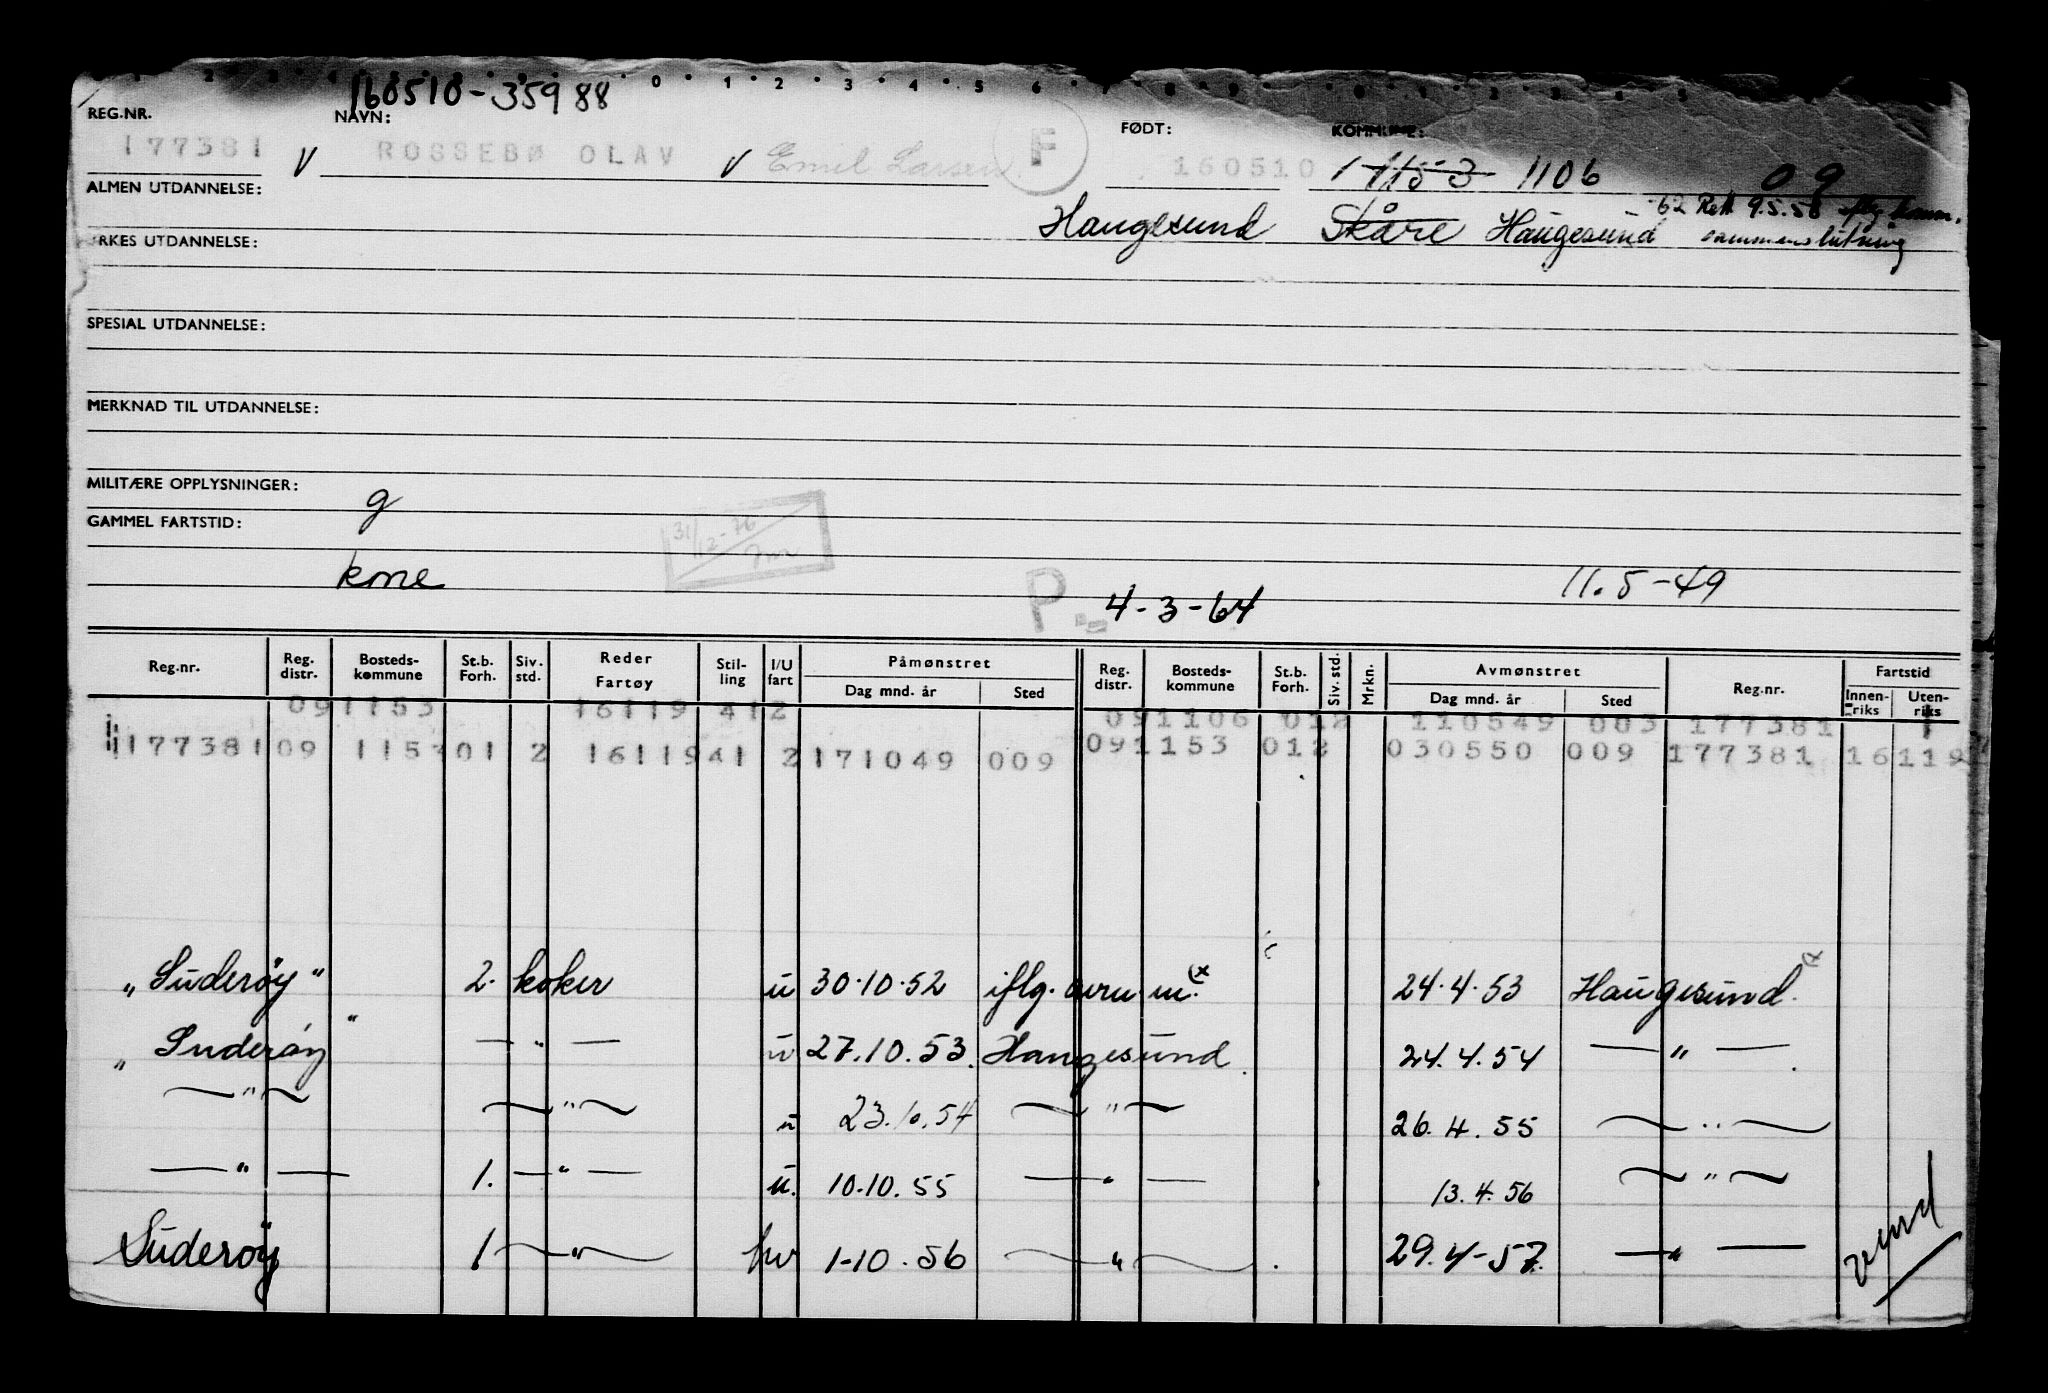 160510-35988
0 1 2 3 4 5 6 7 8 9
REG.NR. NAVN: FØDT: KOMMUNE:
177381 V ROSSEBØ OLAV V Emil Larsen F 160510 1153 1106 09
ALMEN UTDANNELSE:
Haugesund Skåre Haugesund -62 Rett 9.5.58 iflg komm.
sammenslutning
YRKES UTDANNELSE:
SPESIAL UTDANNELSE:
MERKNAD TIL UTDANNELSE:
MILITÆRE OPPLYSNINGER: g
GAMMEL FARTSTID:
31/12-76
kone
P. 4-3-64 11.5-49
Reg.nr. Reg. distr. Bosteds- kommune St.b. Forh. Siv. std. Reder Fartøy Stil- ling I/U fart Påmønstret Dag mnd. år Sted Reg. distr. Bosteds- kommune St.b. Forh. Siv. std. Mrkn. Avmønstret Dag mnd. år Sted Reg.nr. Fartstid Innen- riks Uten- riks
09 1153 16119 41 2 09 1106 012 110549 003 177381 1
177381 09 1153 01 2 16119 41 2 171049 009 09 1153 012 030550 009 177381 16119
"Suderøy" 2. koker u 30.10.52 iflg. avm m. (x 24.4.53 Haugesund. (x
"Suderøy" — " — u 27.10.53. Haugesund. 24.4.54 — " — .
— " — — " — u 23.10.54 — " — 26.4.55 — " —
— " — 1. — " — u. 10.10.55 — " — 13.4.56 — " —
Suderøy 1 — " — hv 1-10.56 — " — . 29.4-57. — " —
vend